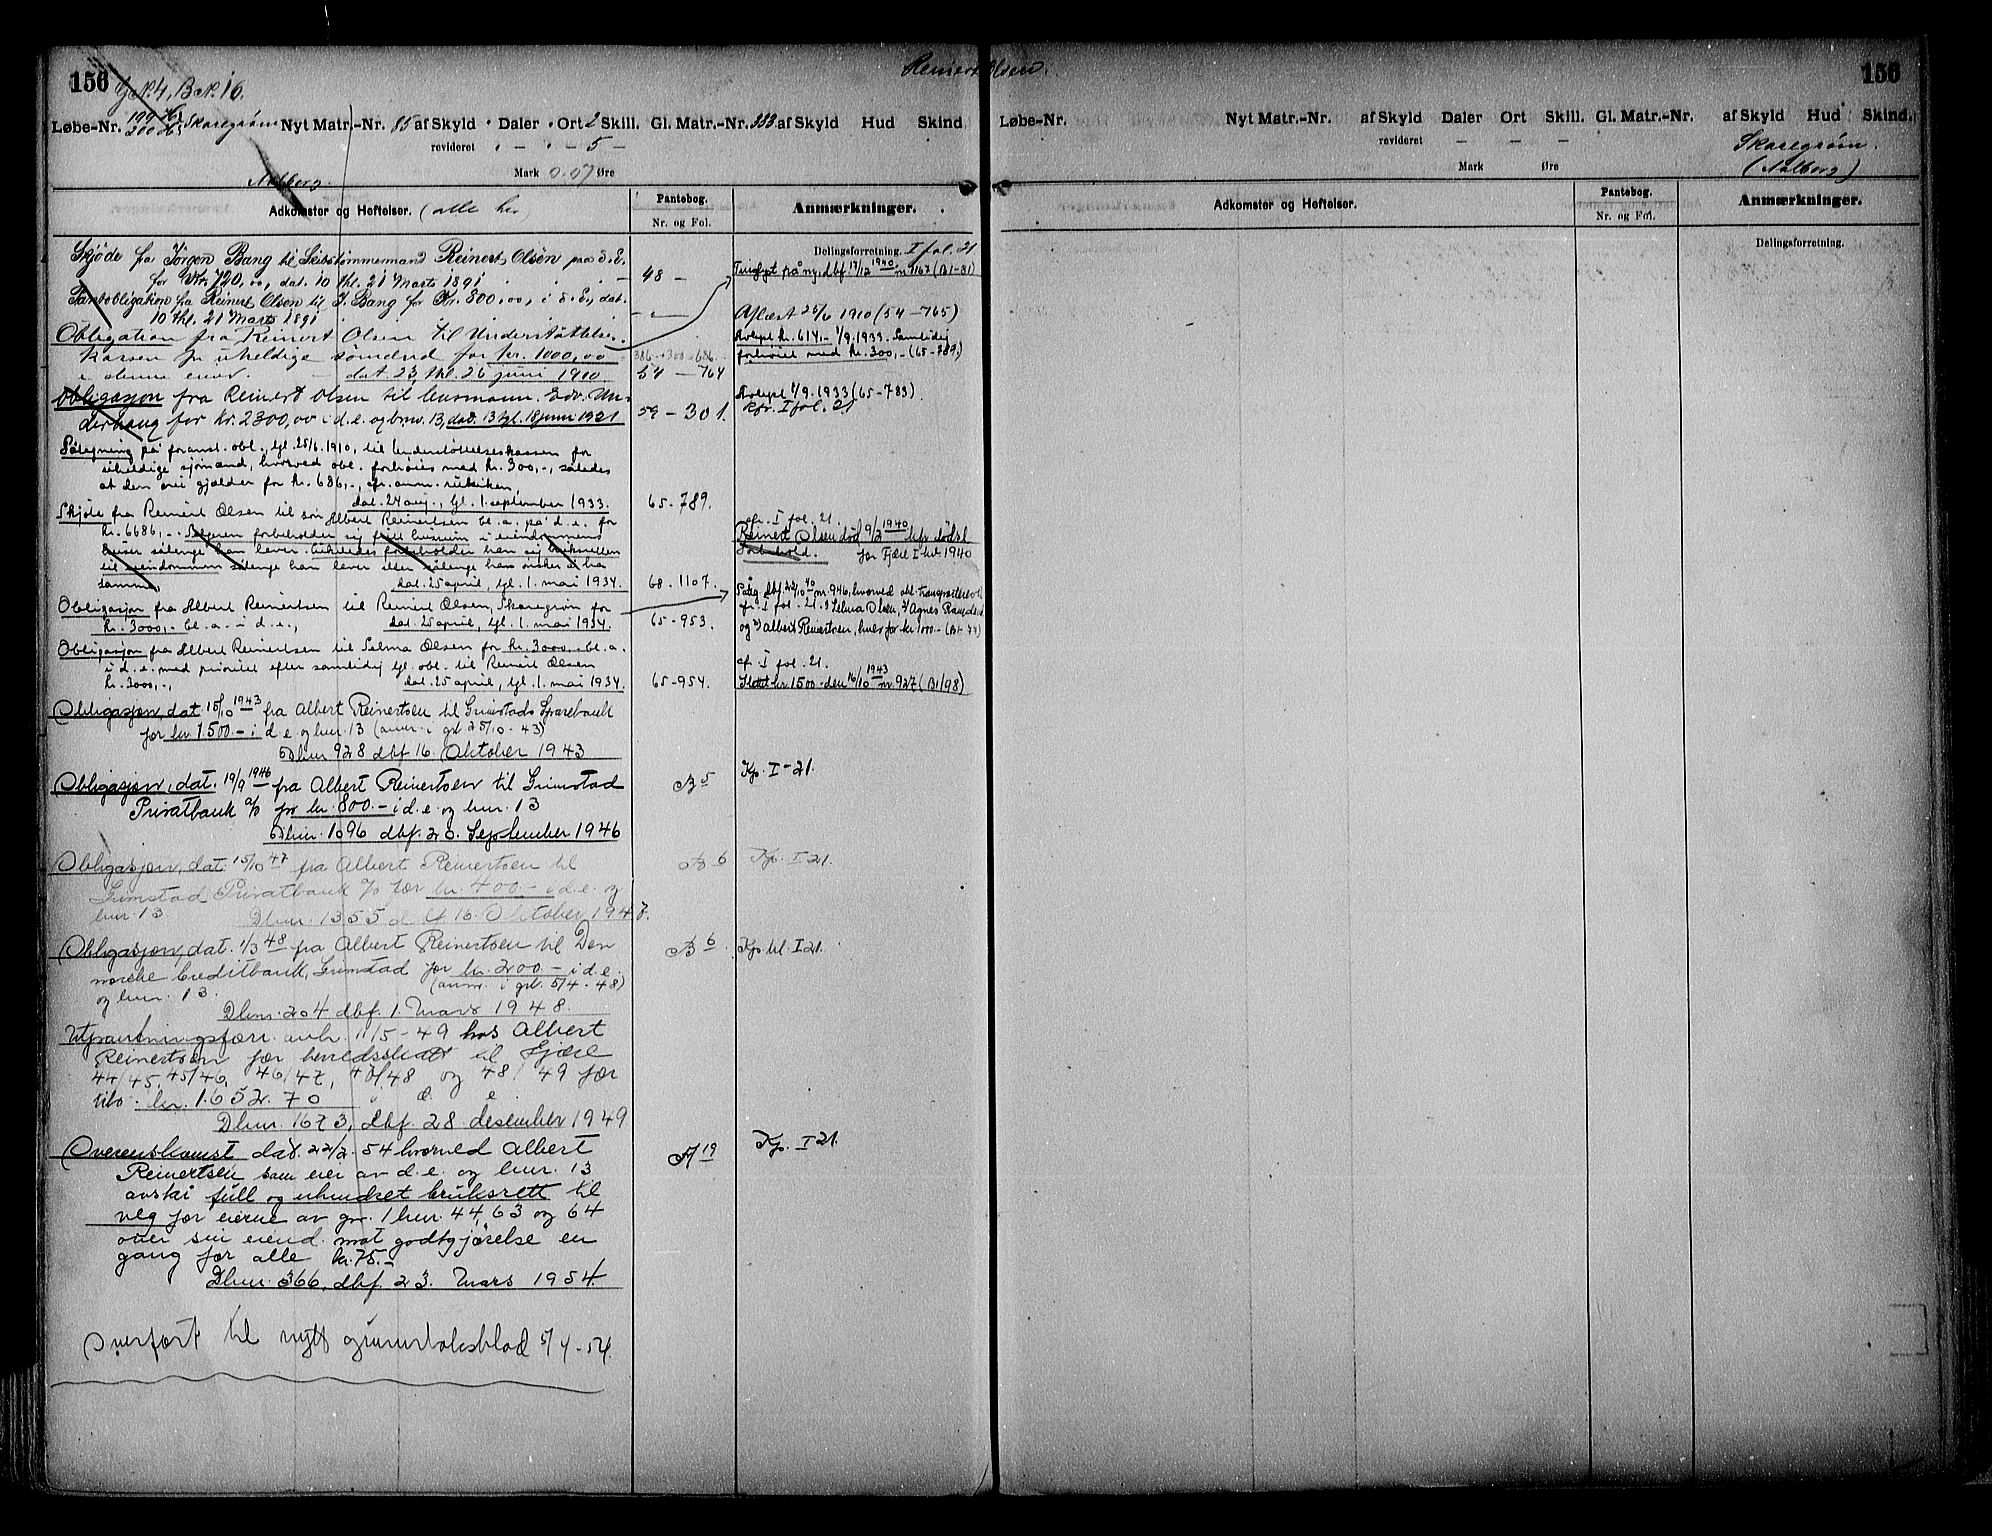 156
G.No. 4, B.No. 16.
Reinert Olsen.
156
Løbe-Nr. 199 Skaregrøm Nyt Matr.-Nr. 85 af Skyld Daler Ort 2 Skill. Gl. Matr.-Nr. 223 af Skyld Hud Skind.
revideret " — " — 5 —
Aalberg.
Mark 0.07 Øre
Adkomster og Heftelser. (alle her)
Pantebog.
Nr. og Fol.
Anmærkninger.
Delingsforretning. I fol. 21
Skjöde fra Jörgen Bang til Skibstømmermand Reinert Olsen paa d. E.
for Kr. 720,00, dat. 10 thl. 21 Marts 1891
48 —
Tinglyst på ny, dbf 17/12 1940 nr 1167 (B1-31)
Pantobligation fra Reinert Olsen til J. Bang for Kr. 800,00, i d. E., dat.
10 thl. 21 Marts 1891
Aflæst 25/6 1910 (54-765)
Obligation fra Reinert Olsen til Understøttelses-
kassen for uheldige sømænd for kr. 1000,00
i denne eiend. dat. 23, thl. 26 juni 1910
386 + 300 = 686.
54 — 764
Avlyst kr. 614,- 1/9.1933. Samtidig
forhøiet med kr. 300,- (65-789.)
Obligasjon fra Reinert Olsen til husmann. Edv. Un-
derhaug for kr. 2300,00 i d. e. og brnr. 13, dat. 13 tgl. 18 juni 1921
59 - 301.
Avlyst 1/9.1933 (65-783)
kfr. I fol. 21
Påtegning på foranst. obl., tgl. 25/6.1910, til Understøttelseskassen for
uheldige sjømænd, hvorved obl. forhøies med kr. 300,-, således
at den nu gjælder for kr. 686,-, cfr. anm. rubriken,
dat. 24 aug., tgl. 1. september 1933.
65-789.
Skjøte fra Reinert Olsen til søn Albert Reinertsen bl. a. på d. e. for
kr. 6686,-. Selgeren forbeholder sig fritt husrum i eiendommens
huser sålenge han lever. Likeledes forbeholder han sig bruksretten
til eiendommen sålenge han lever eller sålenge han ønsker at ha
samme dat. 25 april, tgl. 1. mai 1934.
68.1107.
cfr. I fol. 21.
Reinert Olsen død 9/2 1940 kfr. dødsf.
forbehold. for Fjære I 1940
Obligasjon fra Albert Reinertsen til Reinert Olsen, Skaregrøm for
kr. 3000,- bl. a. i d. e., dat. 25 april, tgl. 1. mai 1934.
65-953.
Påteg. dbf. 22/10 40 nr. 946, hvorved obl. transporteres til
cfr. I fol. 21. 1) Selma Olsen, 2) Agnes
og 3) Albert Reinertsen, hver for kr 1000.- (B1-74)
Obligasjon fra Albert Reinertsen til Selma Olsen for kr. 3000,- bl. a.
i d. e. med prioritet efter samtidig tgl. obl. til Reinert Olsen
kr. 3000,-, dat. 25 april, tgl. 1. mai 1934.
65-954.
cf. I fol. 21.
Slettet kr 1500.- den 16/10 1943 nr. 927 (B1/98)
Obligasjon, dat 15/10 1943 fra Albert Reinertsen til Grimstads Sparebank
for kr. 1500.- i d. e. og bnr. 13 (anm. i grb. 25/10-43)
Dbnr. 928 dbf. 16. Oktober 1943
Obligasjon, dat. 19/9 1946 fra Albert Reinertsen til Grimstad
Privatbank A/S for kr. 800.- i d. e. og bnr. 13
Dbnr. 1096 dbf. 20. September 1946
B 5
Kfr. I-21.
Obligasjon, dat. 15/10 47 fra Albert Reinertsen til
Grimstad Privatbank A/S for kr. 400.- i d. e. og
bnr. 13. Dbnr. 1355 dbf. 16. Oktober 1947.
B 6
Kfr. I 21.
Obligasjon, dat. 1/3 48 fra Albert Reinertsen til Den
norske Creditbank, Grimstad for kr. 200.- i d. e.
og bnr. 13. (anm. i grb. 5/4-48)
Dbnr. 204 dbf. 1. Mars 1948.
B 6.
Kfr. bl. I 21.
Utpantningsforr. avh. 11/5-49 hos Albert
Reinertsen for herredsskatt til Fjære
44/45, 45/46, 46/47, 47/48 og 48/49 for
tils. kr. 1652.70 i d. e.
Dbnr. 1673, dbf. 28. desember 1949.
Overenskomst dat. 22/2.54 hvorved Albert
Reinertsen som eier av d. e. og bnr. 13
avstår full og uhindret bruksrett til
veg for eierne av gnr. 1 bnr. 44, 63 og 64
over sin eiend. mot godtgjørelse en
gang for alle kr. 75.-
Dbnr. 366, dbf. 23. Mars 1954.
A 19
Kfr. I 21.
Overført til nytt grunnboksblad 5/4-54.
Løbe-Nr. Nyt Matr.-Nr. af Skyld Daler Ort Skill. Gl. Matr.-Nr. af Skyld Hud Skind.
revideret — — —
Skaregrøm.
(Aalberg)
Mark Øre
Adkomster og Heftelser.
Pantebog.
Nr. og Fol.
Anmærkninger.
Delingsforretning.